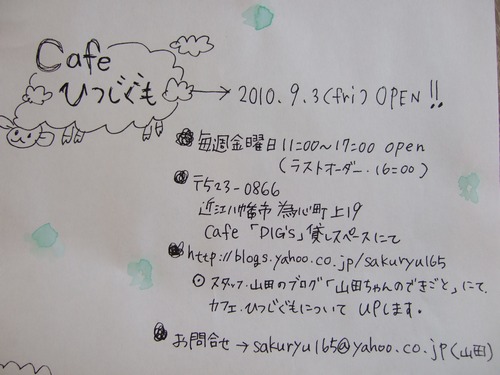 Cafe
ひつじぐも
→ 2010.9.3(fri) OPEN!!
毎週金曜日 11:00〜17:00 open
(ラストオーダー・16:00)
〒523-0866
近江八幡市 為心町上19
Cafe 「DIG's」貸しスペースにて
http://blogs.yahoo.co.jp/sakuryu165
スタッフ・山田のブログ「山田ちゃんのできごと」にて、
カフェ・ひつじぐもについて UPします。
お問合せ → sakuryu165@yahoo.co.jp (山田)